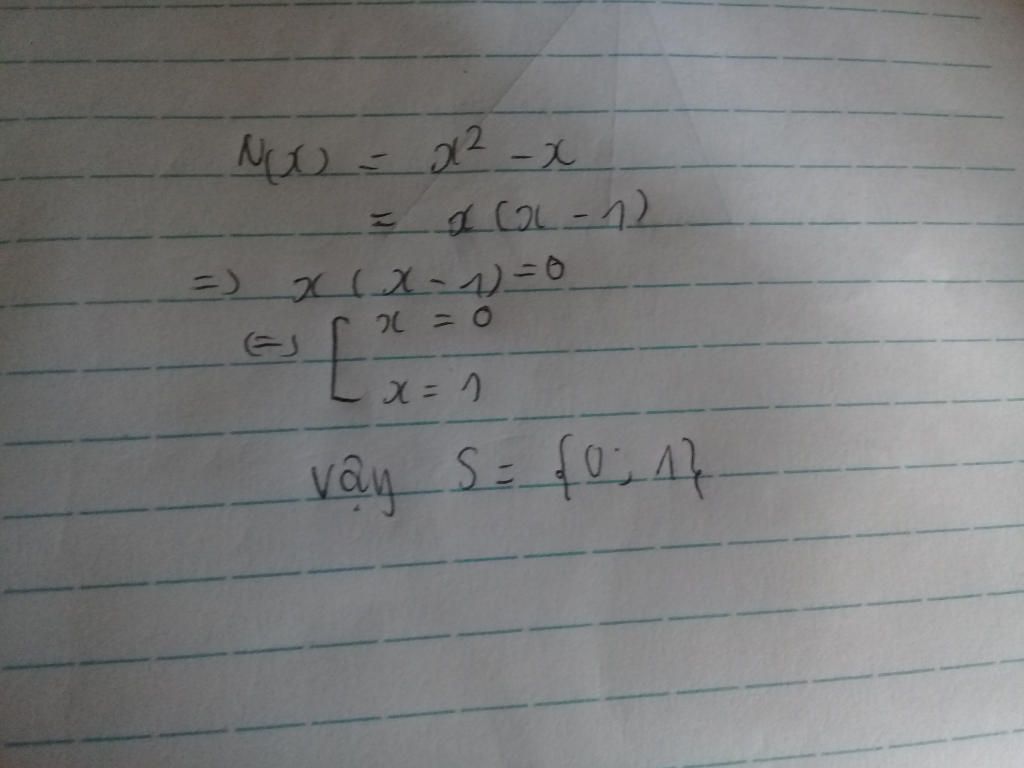 N(x) = x² - x
= x(x - 1)
=> x(x - 1) = 0
<=> [ x = 0
x = 1
Vậy S = {0; 1}